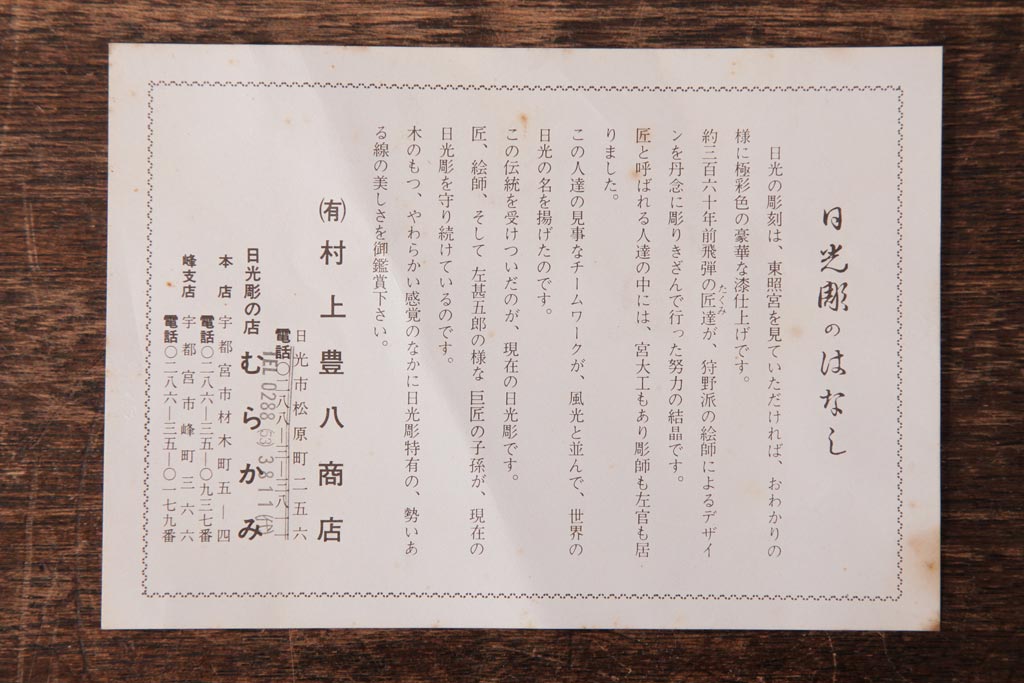 日光彫のはなし
日光の彫刻は、東照宮を見ていただければ、おわかりの
様に極彩色の豪華な漆仕上げです。
約三百六十年前飛弾の匠達が、狩野派の絵師によるデザイ
たくみ
ンを丹念に彫りきざんで行った努力の結晶です。
匠と呼ばれる人達の中には、宮大工もあり彫師も左官も居
りました。
この人達の見事なチームワークが、風光と並んで、世界の
日光の名を揚げたのです。
この伝統を受けついだのが、現在の日光彫です。
匠、絵師、そして左甚五郎の様な巨匠の子孫が、現在の
日光彫を守り続けているのです。
木のもつ、やわらかい感覚のなかに日光彫特有の、勢いあ
る線の美しさを御鑑賞下さい。
㈲村上豊八商店
日光市松原町二五六
電話〇二八八―二―二八一一
TEL 0288 (53) 3811 ㈹
日光彫の店 むらかみ
本店 宇都宮市材木町五―四
電話〇二八六―三五―〇九三七番
峰支店 宇都宮市峰町三六六
電話〇二八六―三五―〇一七九番